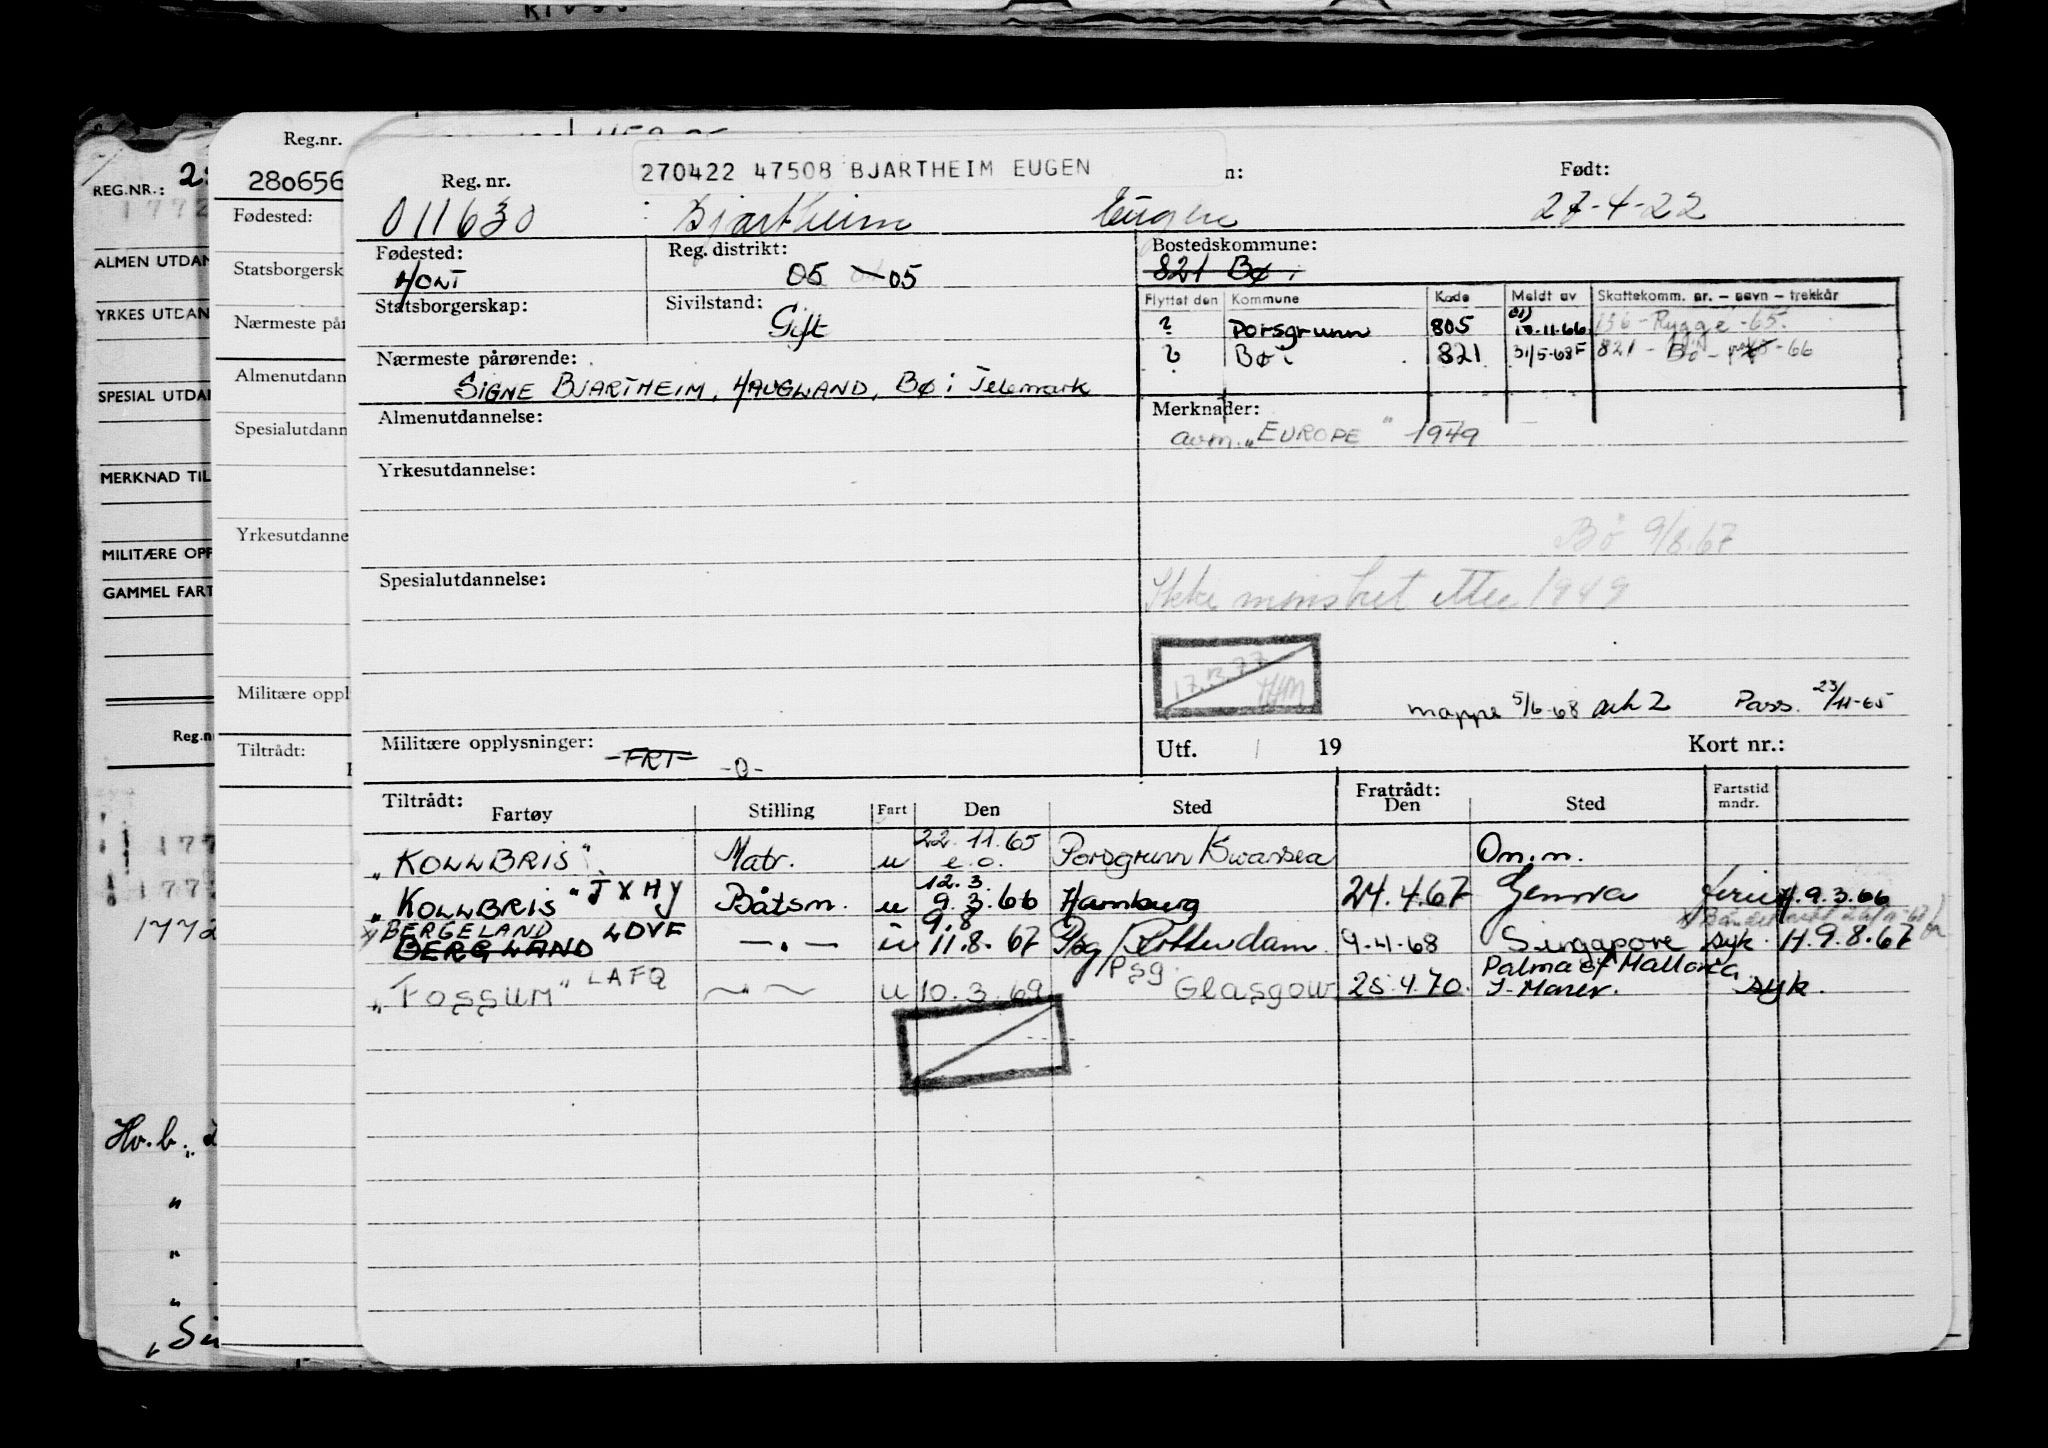 REG.NR.:
ALMEN UTDAN
YRKES UTDAN
SPESIAL UTDAN
MERKNAD TIL
MILITÆRE OPP
GAMMEL FART
Reg.n
1772
Hv.b.
Reg.nr.
280656
Fødested:
Statsborgersk
Nærmeste pår
Almenutdann
Spesialutdann
Yrkesutdanne
Militære oppl
Tiltrådt:
270422 47508 BJARTHEIM EUGEN
Reg. nr. n: Født:
011630 Bjartheim Eugen 27-4-22
Fødested: Reg. distrikt: Bostedskommune:
HOLT 05 - 05 821 Bø i
Statsborgerskap: Sivilstand: Gift
Flyttet den Kommune Kode Meldt av Skattekomm. nr. - navn - trekkår
? Porsgrunn 805 17.11.66 136 - Rygge - 65.
? Bø i 821 31/5-68F 821 - Bø - 66
Nærmeste pårørende:
SIGNE BJARTHEIM, HAUGLAND, Bø i Telemark
Almenutdannelse: Merknader:
avm. "EUROPE" 1949
Yrkesutdannelse:
Bø 9/8.67
Spesialutdannelse: Ikke mønstret etter 1949
17.3.77
mappe 5/6-68 ark 2 Pass. 23/11-65
Militære opplysninger: FRT -0- Utf. / 19 Kort nr.:
Tiltrådt: Fratrådt:
Fartøy Stilling Fart Den Sted Den Sted Fartstid mndr.
"KOLLBRIS" Matr. u 22.11.65 e.o. Porsgrunn/Swansea On.m.
"KOLLBRIS" JXHY Båtsm. u 12.3. 9.3.66 Hamburg 24.4.67 Genova ferie H.9.3.66
x) BERGELAND LDVF
BERGLAND -.- u 9.8 11.8.67 Psg/Rotterdam 9-4-68 Singapore syk. H.9.8.67
"FOSSUM" LAFQ u 10.3.69 Psg. Glasgow 25.4.70. Palma of Mallorca syk.